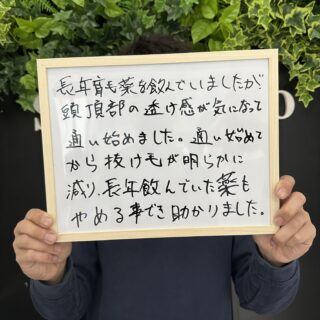 長年育毛薬を飲んでいましたが
頭頂部の透け感が気になって
通い始めました。通い始めて
から抜け毛が明らかに
減り、長年飲んでいた薬も
やめる事でき助かりました。